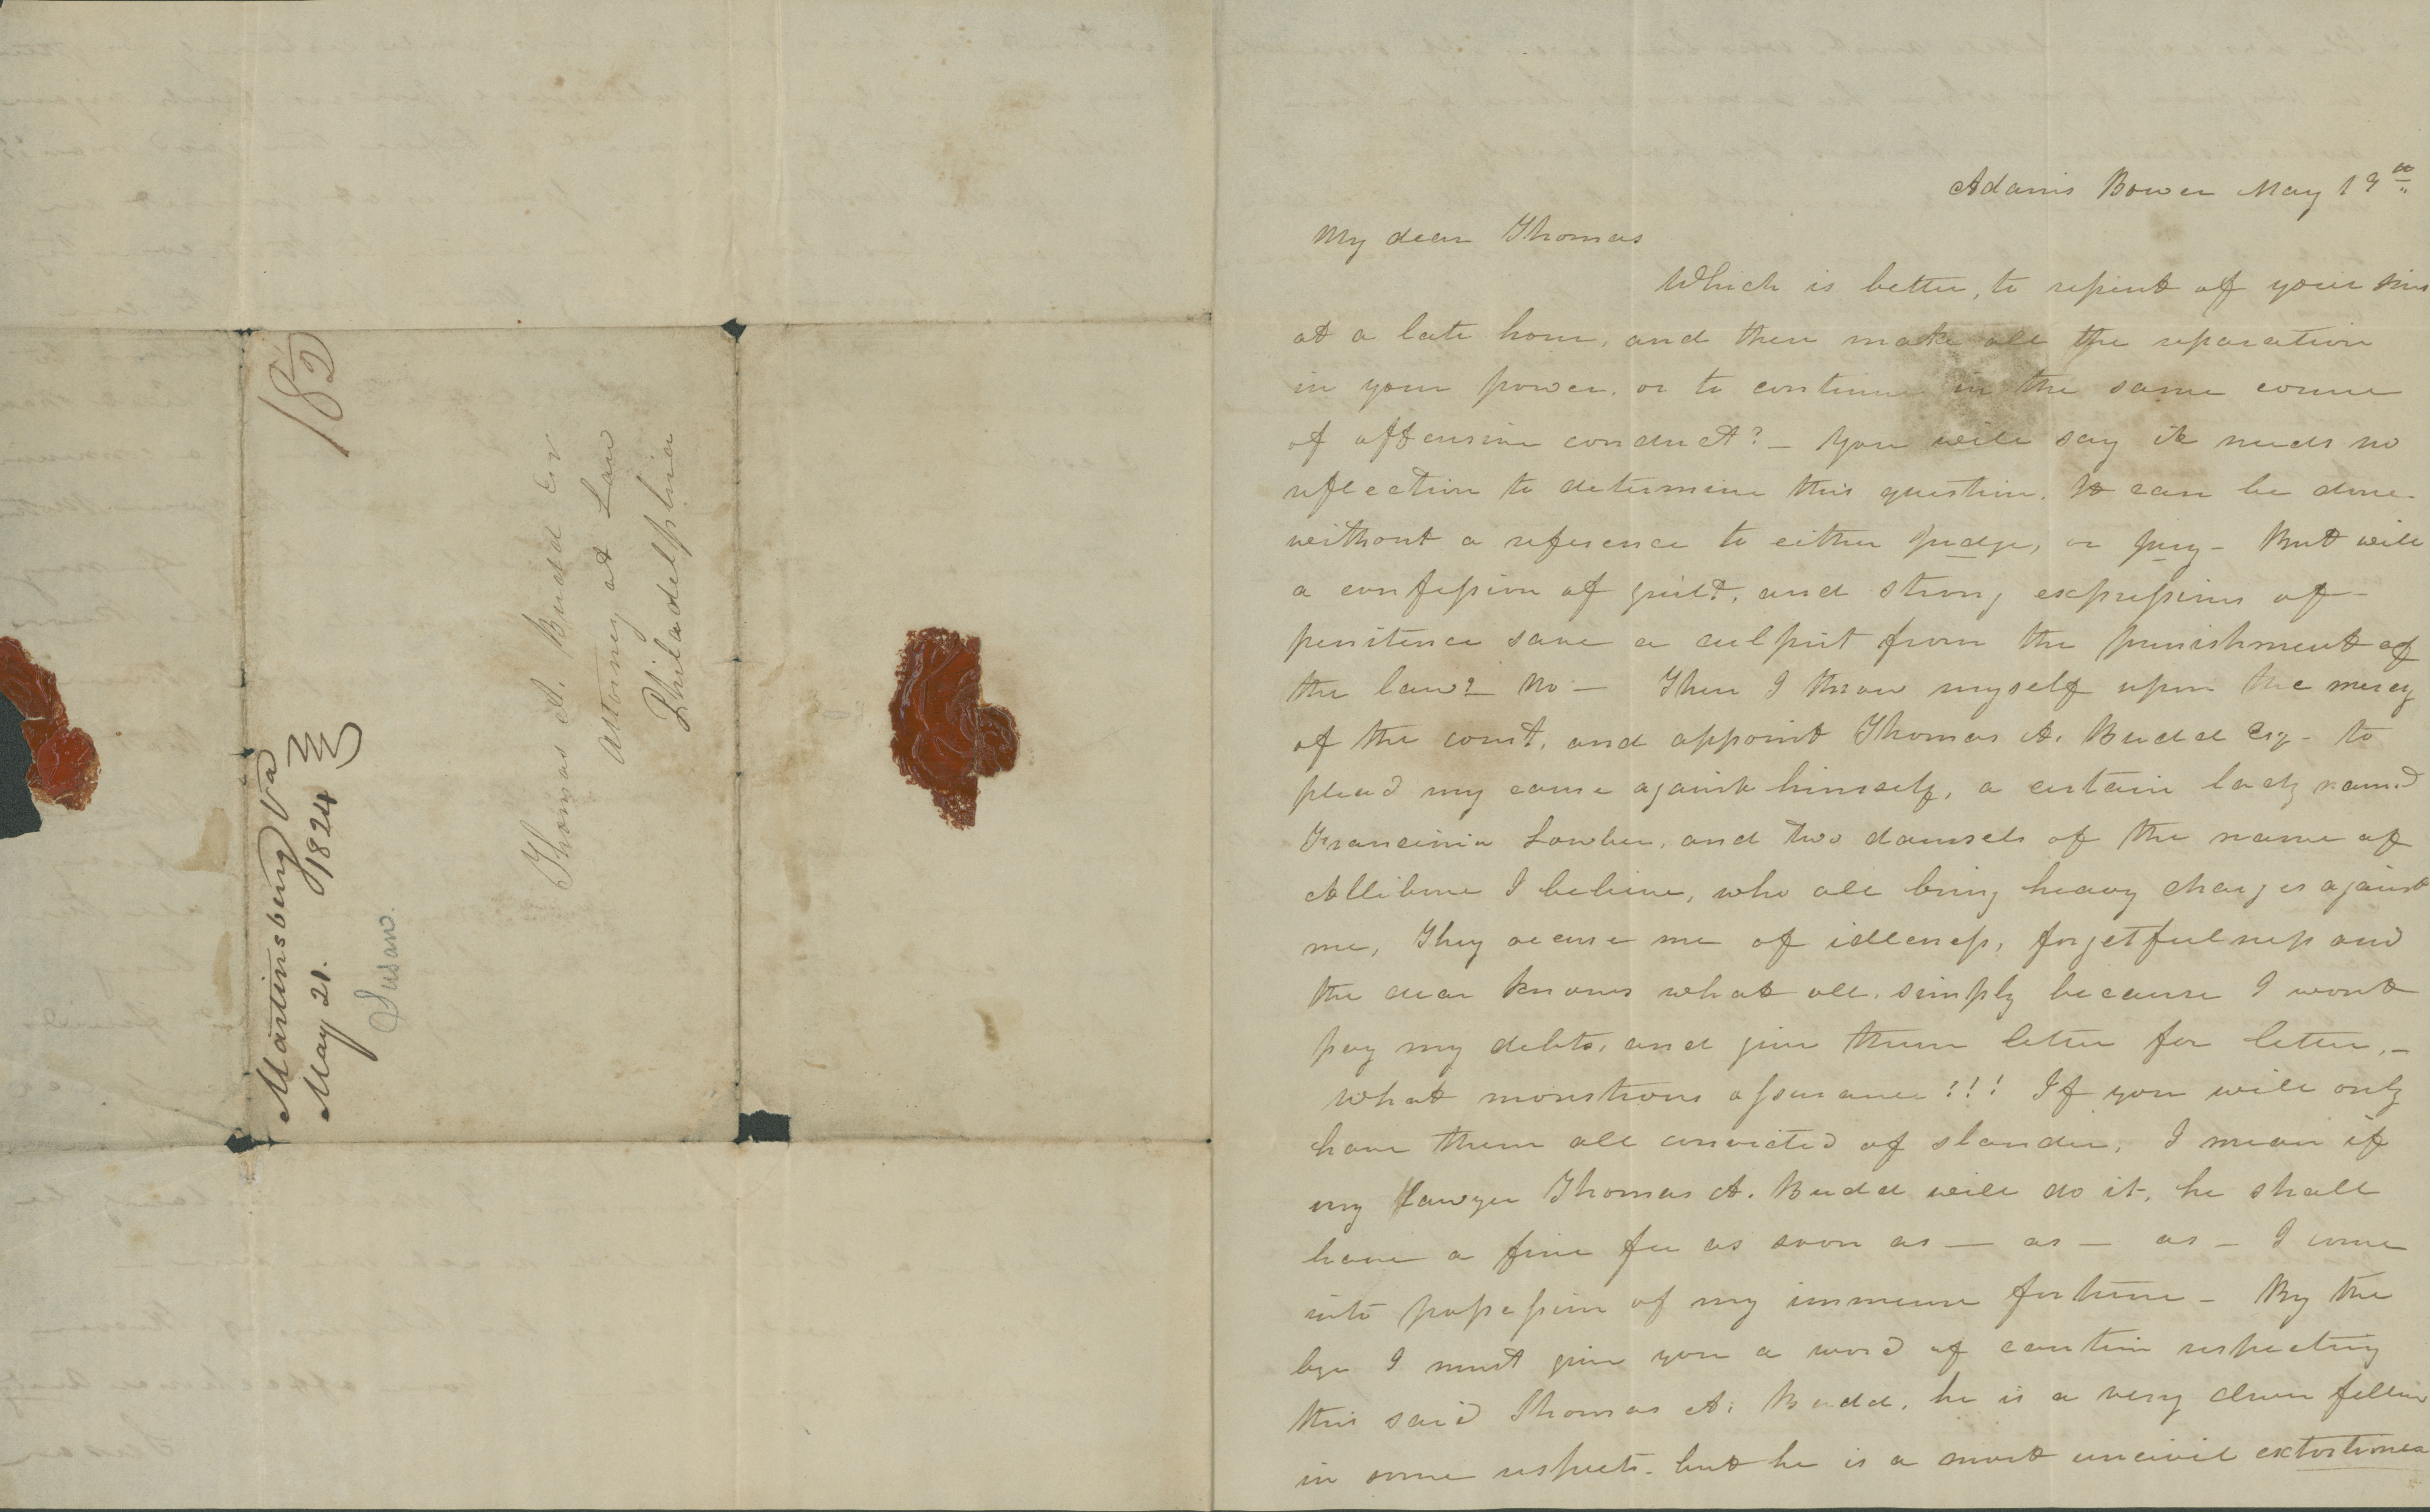 18 1/2
Martinsburg Va
May 21. 1824
Susan.
Thomas A. Budd Esr
Attorney at Law
Philadelphia
Adam's Bower May 19th
My dear Thomas
Which is better, to repent of your sins
at a late hour, and then make all the reparation
in your power, or to continue in the same course
of offensive conduct? – You will say it needs no
reflection to determine this question. It can be done
without a reference to either judge, or jury – But will
a confession of guilt, and strong expressions of
penitence save a culprit from the punishment of
the law? No – Then I throw myself upon the mercy
of the court, and appoint Thomas A. Budd Esq – to
plead my cause against himself, a certain lady named
Francinia Lowber, and two damsels of the name of
Allibone I believe, who all bring heavy charges against
me, They accuse me of idleness, forgetfulness and
the dear knows what all, simply because I wont
pay my debts, and give them letter for letter, –
what monstrous assurance!!! If you will only
have them all convicted of slander, I mean if
my lawyer Thomas A. Budd will do it, he shall
have a fine fee as soon as – as – as – I come
into possession of my immense fortune – By the
bye I must give you a word of caution respecting
this said Thomas A. Budd, he is a very clever fellow
in some respects – but he is a most uncivil extortioner